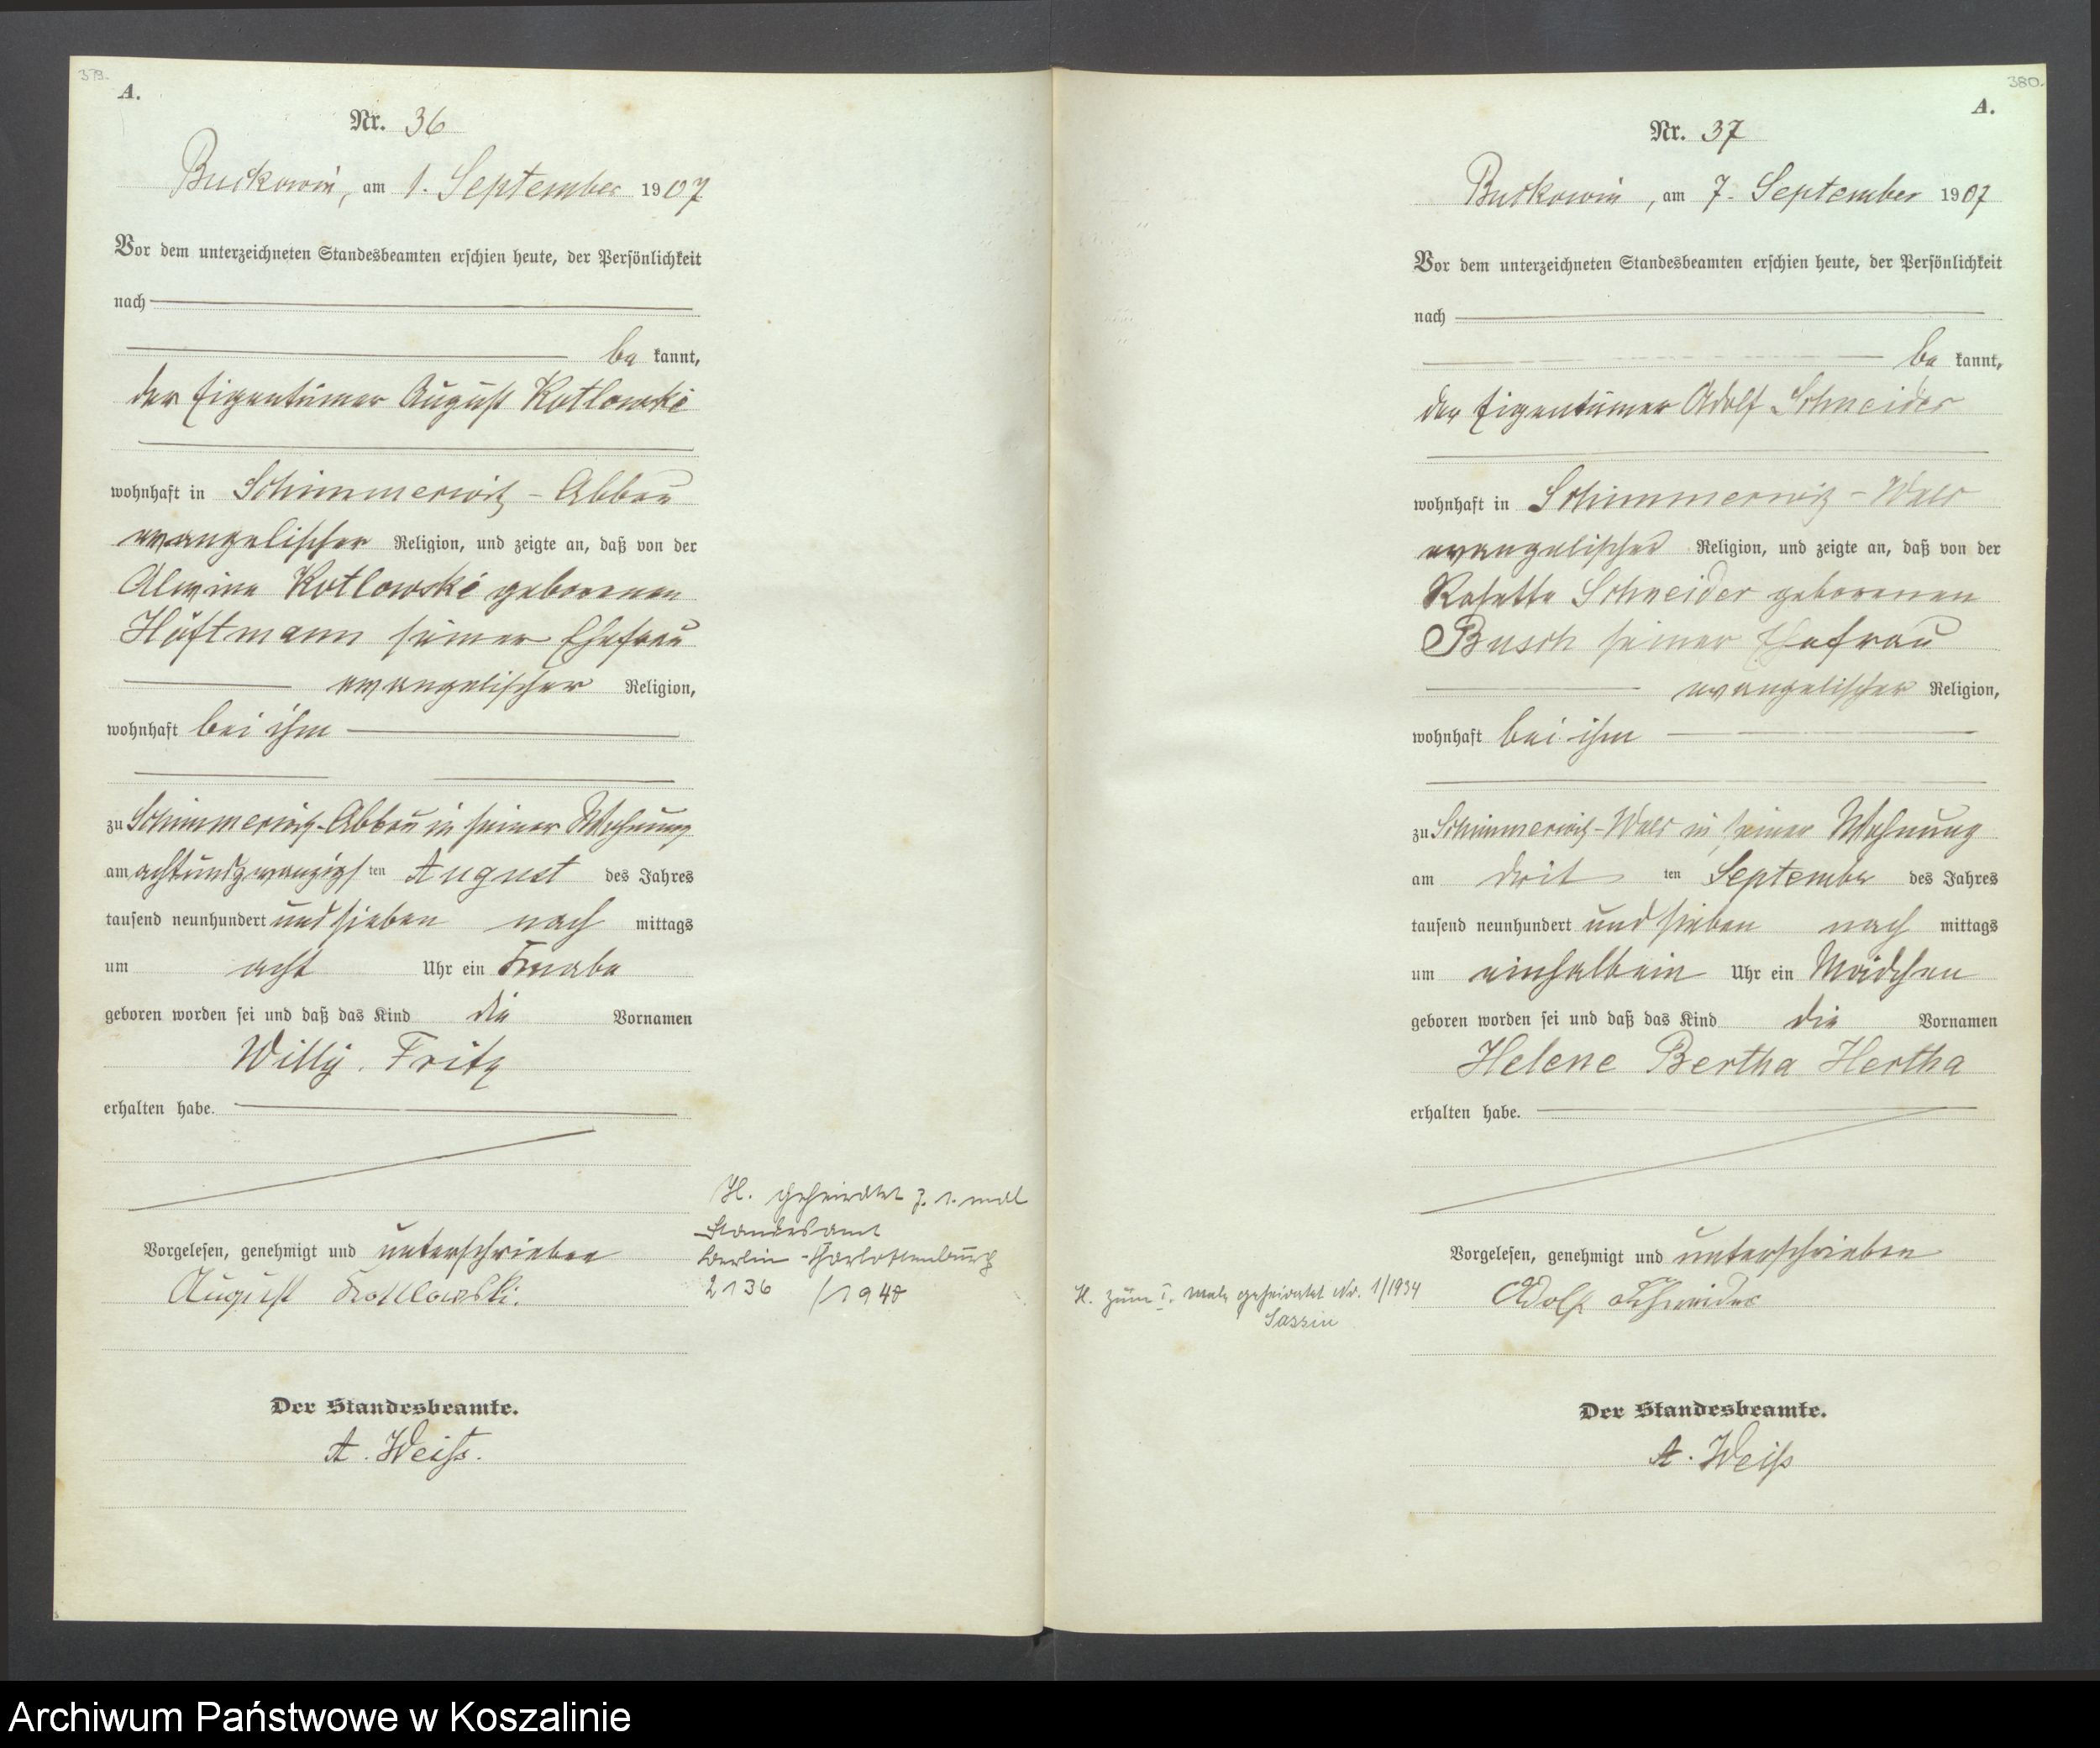 379.
A.
Nr. 36
Buckowin, am 1. September 1907
Vor dem unterzeichneten Standesbeamten erschien heute, der Persönlichkeit
nach
be kannt,
der Eigentümer August Kotlowski
wohnhaft in Schimmerwitz - Abbau
evangelischer Religion, und zeigte an, daß von der
Alwine Kotlowski geborenen
Höftmann seiner Ehefrau
evangelischer Religion,
wohnhaft bei ihm
zu Schimmerwitz-Abbau in seiner Wohnung
am achtundzwanzigsten August des Jahres
tausend neunhundert und sieben nach mittags
um acht Uhr ein Knabe
geboren worden sei und daß das Kind die Vornamen
Willy Fritz
erhalten habe.
H. geheiratet z. 1. mal
Standesamt
Berlin - Charlottenburg
2136 /1940
Vorgelesen, genehmigt und unterschrieben
August Kotlowski.
Der Standesbeamte.
A. Weiß.
380.
A.
Nr. 37
Buckowin, am 7. September 1907
Vor dem unterzeichneten Standesbeamten erschien heute, der Persönlichkeit
nach
be kannt,
der Eigentümer Adolf Schneider
wohnhaft in Schimmerwitz - Wald
evangelischer Religion, und zeigte an, daß von der
Rosette Schneider geborenen
Busch seiner Ehefrau
evangelischer Religion,
wohnhaft bei ihm
zu Schimmerwitz - Wald in seiner Wohnung
am dritten September des Jahres
tausend neunhundert und sieben nach mittags
um einhalb ein Uhr ein Mädchen
geboren worden sei und daß das Kind die Vornamen
Helene Bertha Hertha
erhalten habe.
Vorgelesen, genehmigt und unterschrieben
H. zum I. male geheiratet Nr. 1/1934
Sassin
Adolf Schneider
Der Standesbeamte.
A. Weiß
Archiwum Państwowe w Koszalinie